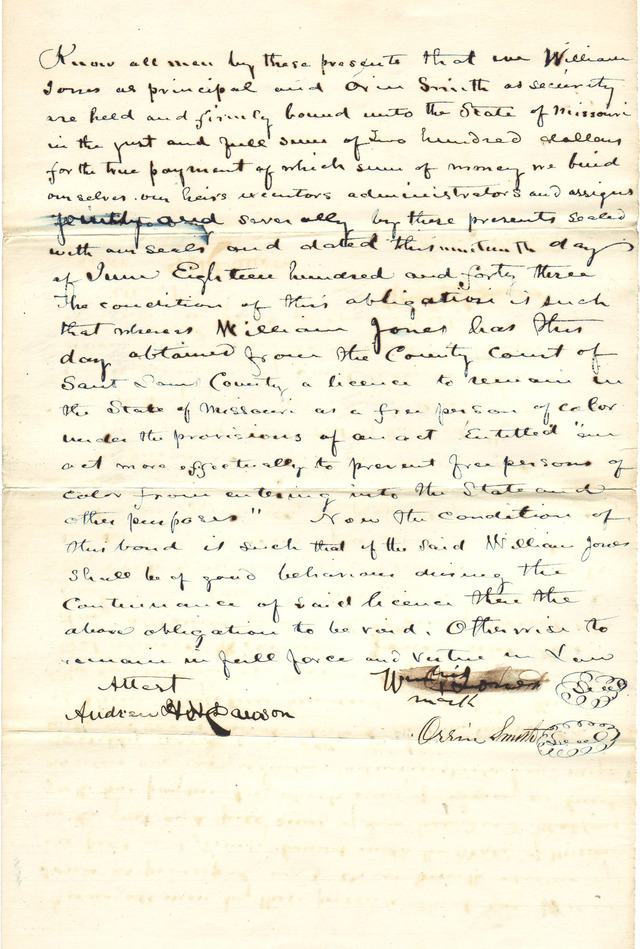 Know all men by these presents that we William
Jones as principal and Orin Smith as security
are held and firmly bound unto the State of Missouri
in the just and full sum of Two hundred dollars
for the true payment of which sum of money we bind
ourselves our heirs executors administrators and assigns
jointly and severally by these presents sealed
with our seals and dated this nineteenth day
of June Eighteen hundred and forty three
The condition of this obligation is such
that whereas William Jones has this
day obtained from the County court of
Saint Louis County a licence to remain in
the State of Missouri as a free person of color
under the provisions of an act Entitled "an
act more effectually to prevent free persons of
color from entering into the State and
other purposes" Now the condition of
this bond is such that if the said William Jones
shall be of good behavior during the
Continuance of said licence then the
above obligation to be void. Otherwise to
remain in full force and virtue in Law
Attest
his
Jones Seal
mark
Andrew Dawson
Orrin Smith Seal